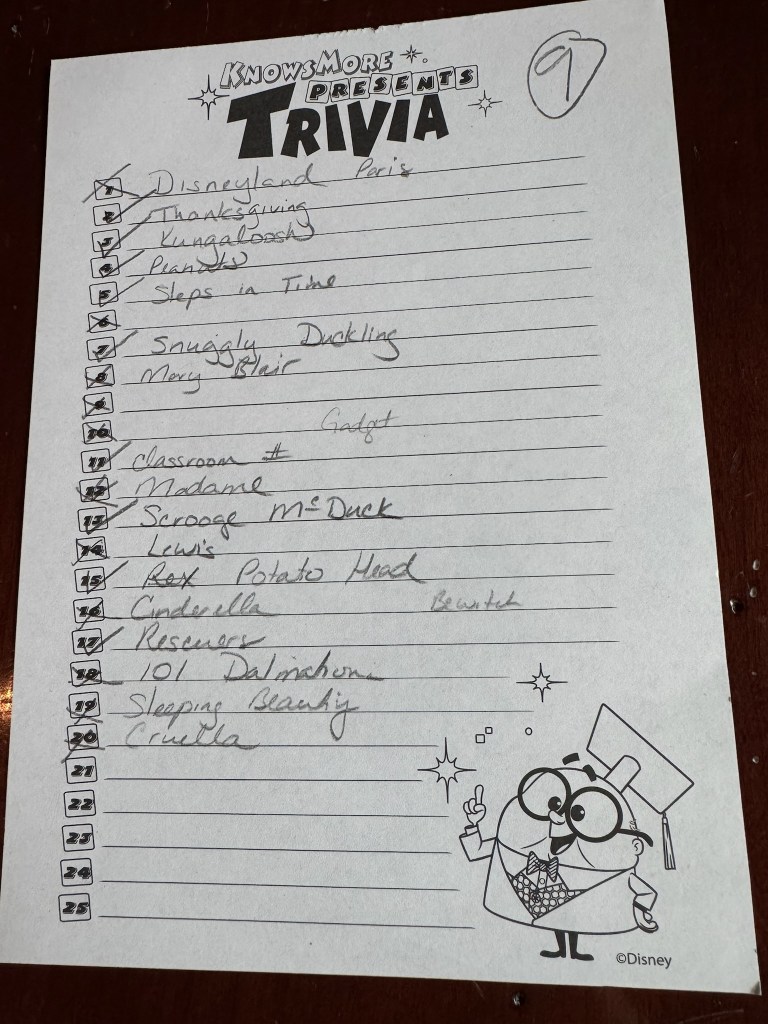 KNOWSMORE
PRESENTS
TRIVIA
9
1 Disneyland Paris
2 Thanksgiving
3 Kungaloosh
4 Peanuts
5 Steps in Time
6
7 Snuggly Duckling
8 Mary Blair
9
10 Gadget
11 Classroom #
12 Madame
13 Scrooge McDuck
14 Lewis
15 Rex Potato Head
16 Cinderella Bewitch
17 Rescuers
18 101 Dalmations
19 Sleeping Beauty
20 Cruella
21
22
23
24
25
©Disney